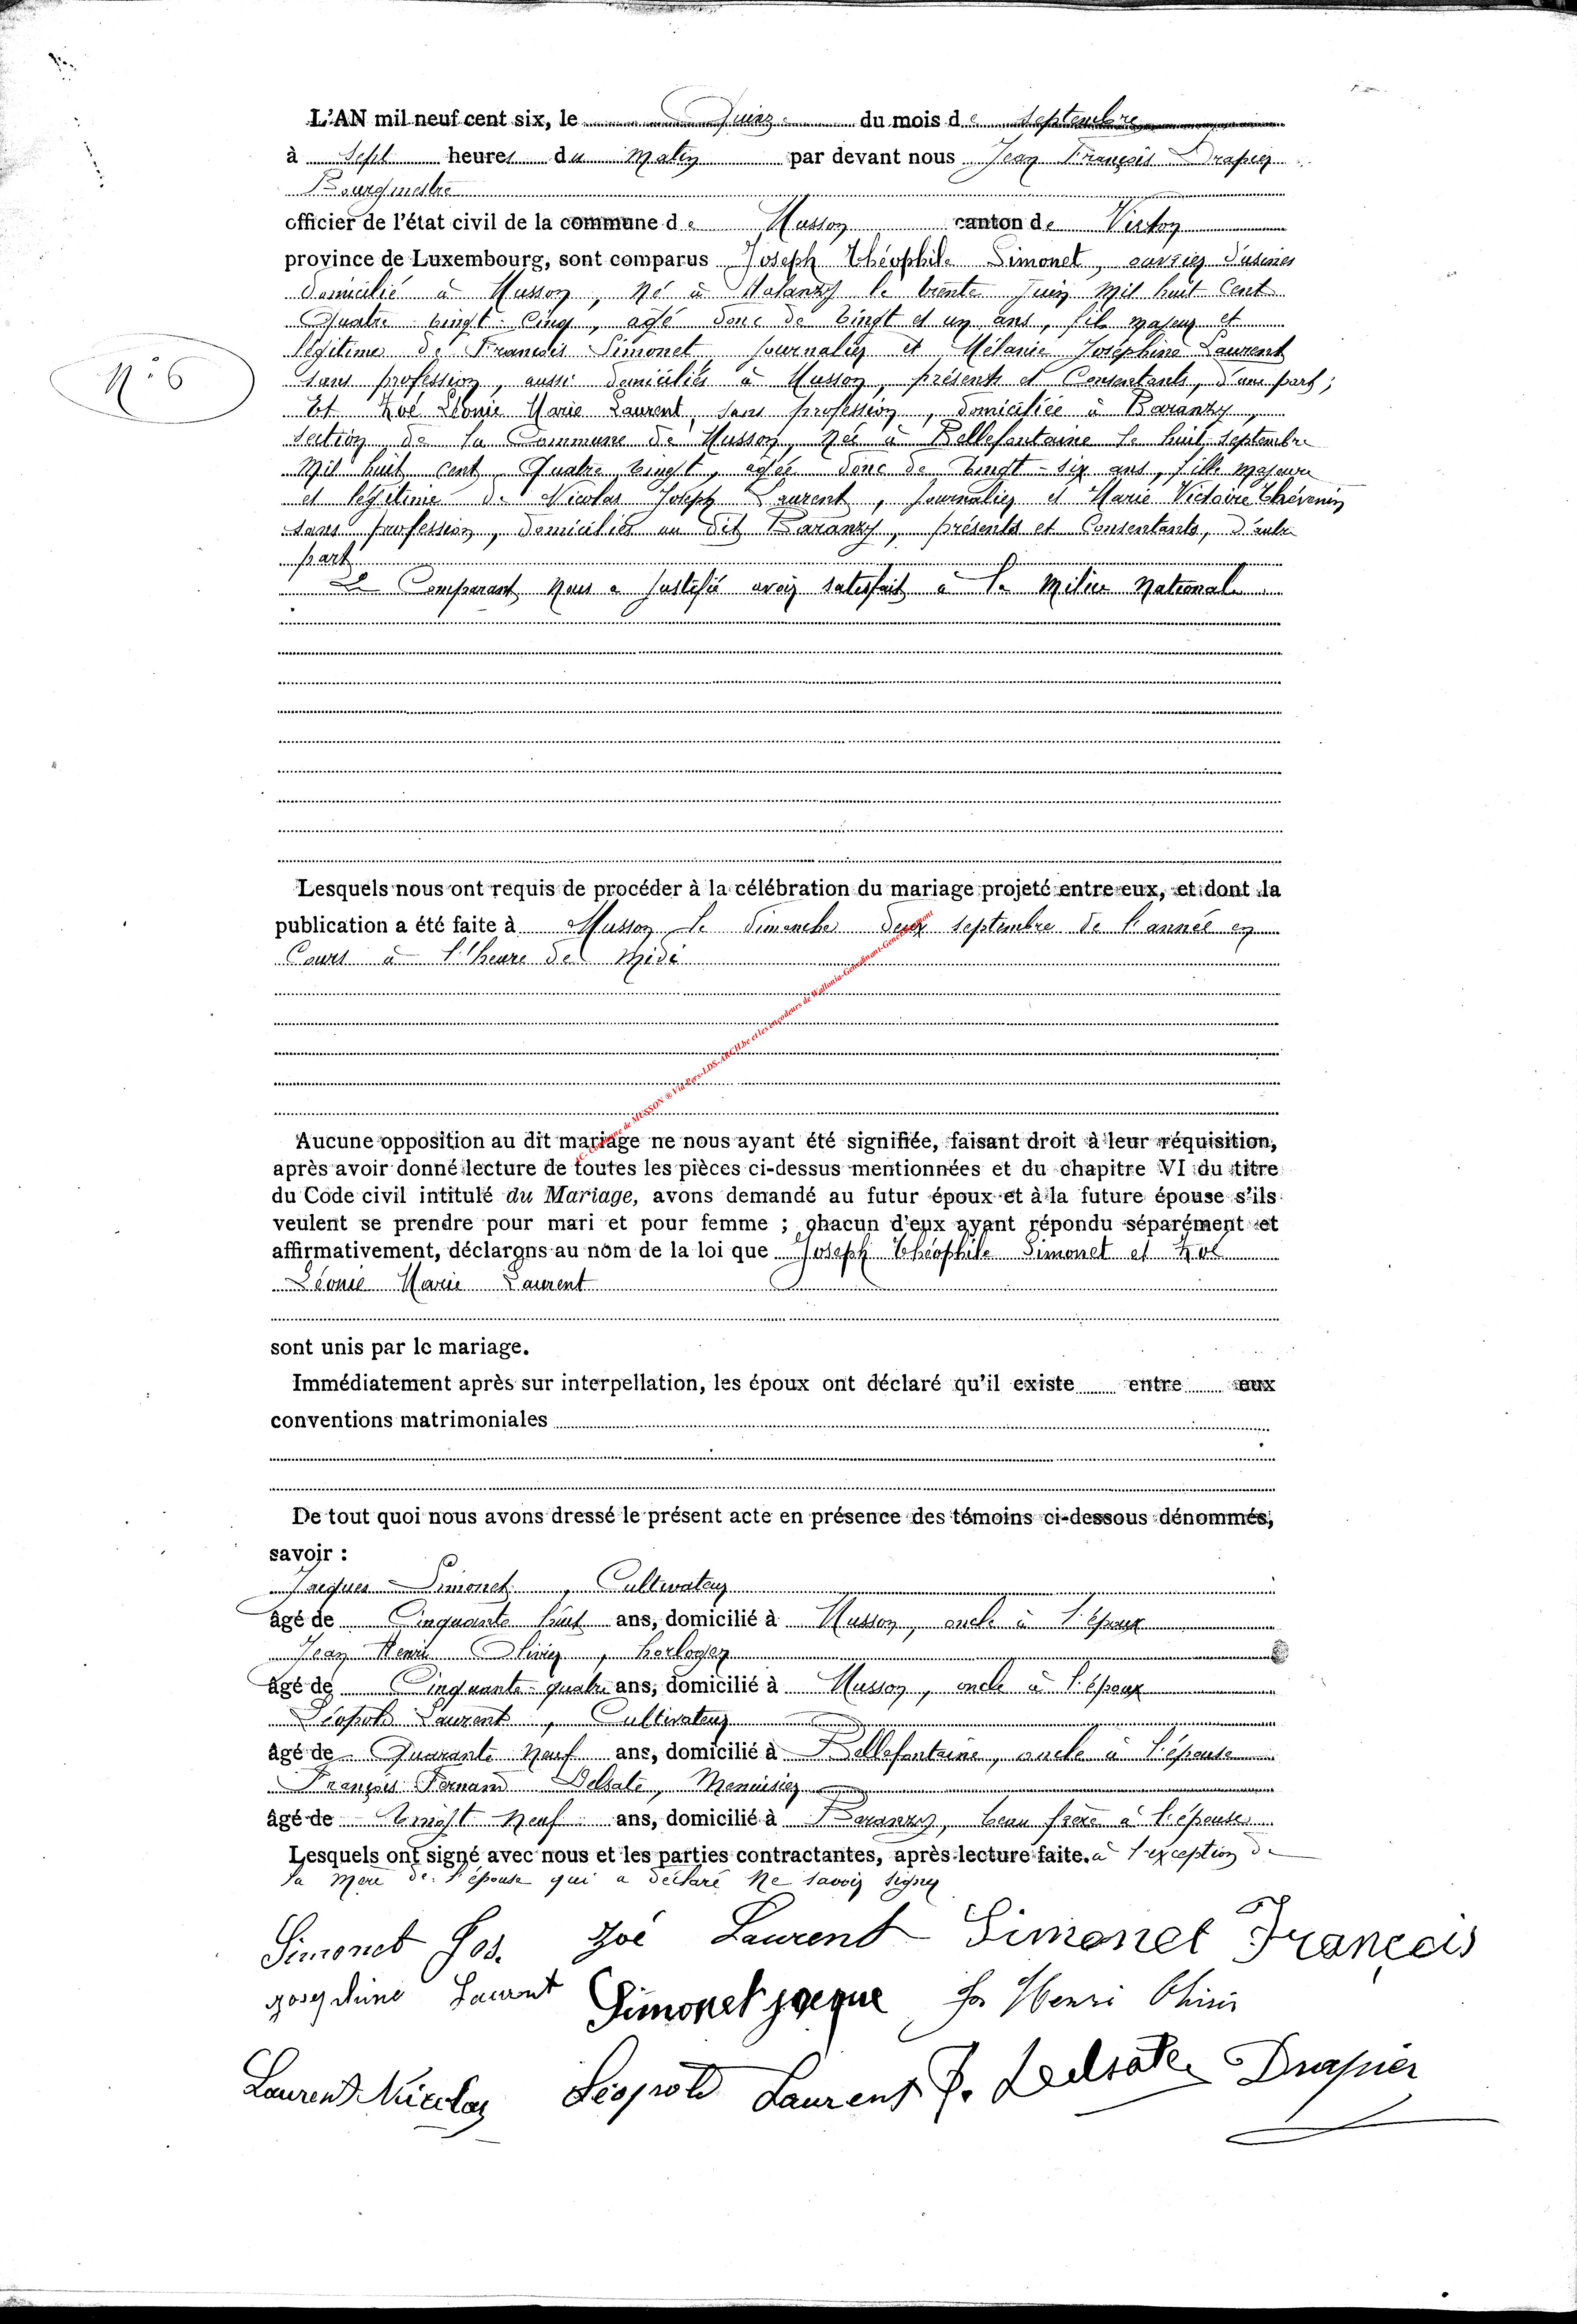 L'AN mil neuf cent six, le Quinze du mois de Septembre
à Sept heures du Matin par devant nous Jean François Drapier
Bourgmestre
officier de l'état civil de la commune de Musson canton de Virton
province de Luxembourg, sont comparus Joseph Théophile Simonet, ouvrier d'usines
domicilié à Musson, né à Halanzy le trente Juin Mil huit Cent
Quatre vingt-Cinq, agé donc de vingt et un ans, fils majeur et
légitime de François Simonet journalier et Mélanie Joséphine Laurent
N° 6
sans profession, aussi domiciliés à Musson, présents et Consentants, d'une part;
Et Zoé Léonie Marie Laurent, sans profession, domiciliée à Baranzy,
section de la Commune de Musson, née à Bellefontaine le huit septembre
Mil huit cent Quatre vingt, agée donc de vingt-six ans, fille majeure
et légitime de Nicolas Joseph Laurent, journalier et Marie Victoire Thévenin
sans profession, domiciliés au dit Baranzy, présents et Consentants, d'autre
part
Le Comparant nous a justifié avoir satisfait à la Milice Nationale
Lesquels nous ont requis de procéder à la célébration du mariage projeté entre eux, et dont la
publication a été faite à Musson le dimanche deux septembre de l'année en
Cours à l'heure de Midi
Aucune opposition au dit mariage ne nous ayant été signifiée, faisant droit à leur réquisition,
après avoir donné lecture de toutes les pièces ci-dessus mentionnées et du chapitre VI du titre
du Code civil intitulé du Mariage, avons demandé au futur époux et à la future épouse s'ils
veulent se prendre pour mari et pour femme ; chacun d'eux ayant répondu séparément et
affirmativement, déclarons au nom de la loi que Joseph Théophile Simonet et Zoé
Léonie Marie Laurent
sont unis par le mariage.
Immédiatement après sur interpellation, les époux ont déclaré qu'il existe entre eux
conventions matrimoniales
De tout quoi nous avons dressé le présent acte en présence des témoins ci-dessous dénommés,
savoir :
Jacques Simonet, Cultivateur
âgé de Cinquante huit ans, domicilié à Musson, oncle à l'époux
Jean Henri Olivier, horloger
âgé de Cinquante-quatre ans, domicilié à Musson, oncle à l'époux
Léopold Laurent, Cultivateur
âgé de Quarante Neuf ans, domicilié à Bellefontaine, oncle à l'épouse
François Fernand Delsate, Menuisier
âgé de Vingt Neuf ans, domicilié à Baranzy, beau frère à l'épouse
Lesquels ont signé avec nous et les parties contractantes, après lecture faite. à l'exception de
la Mère de l'épouse qui a déclaré Ne savoir signer
Simonet Jos. Zoé Laurent Simonet François
Josephine Laurent Simonet jacque Henri
Laurent Nicolas Léopold Laurent F. Delsate Drapier